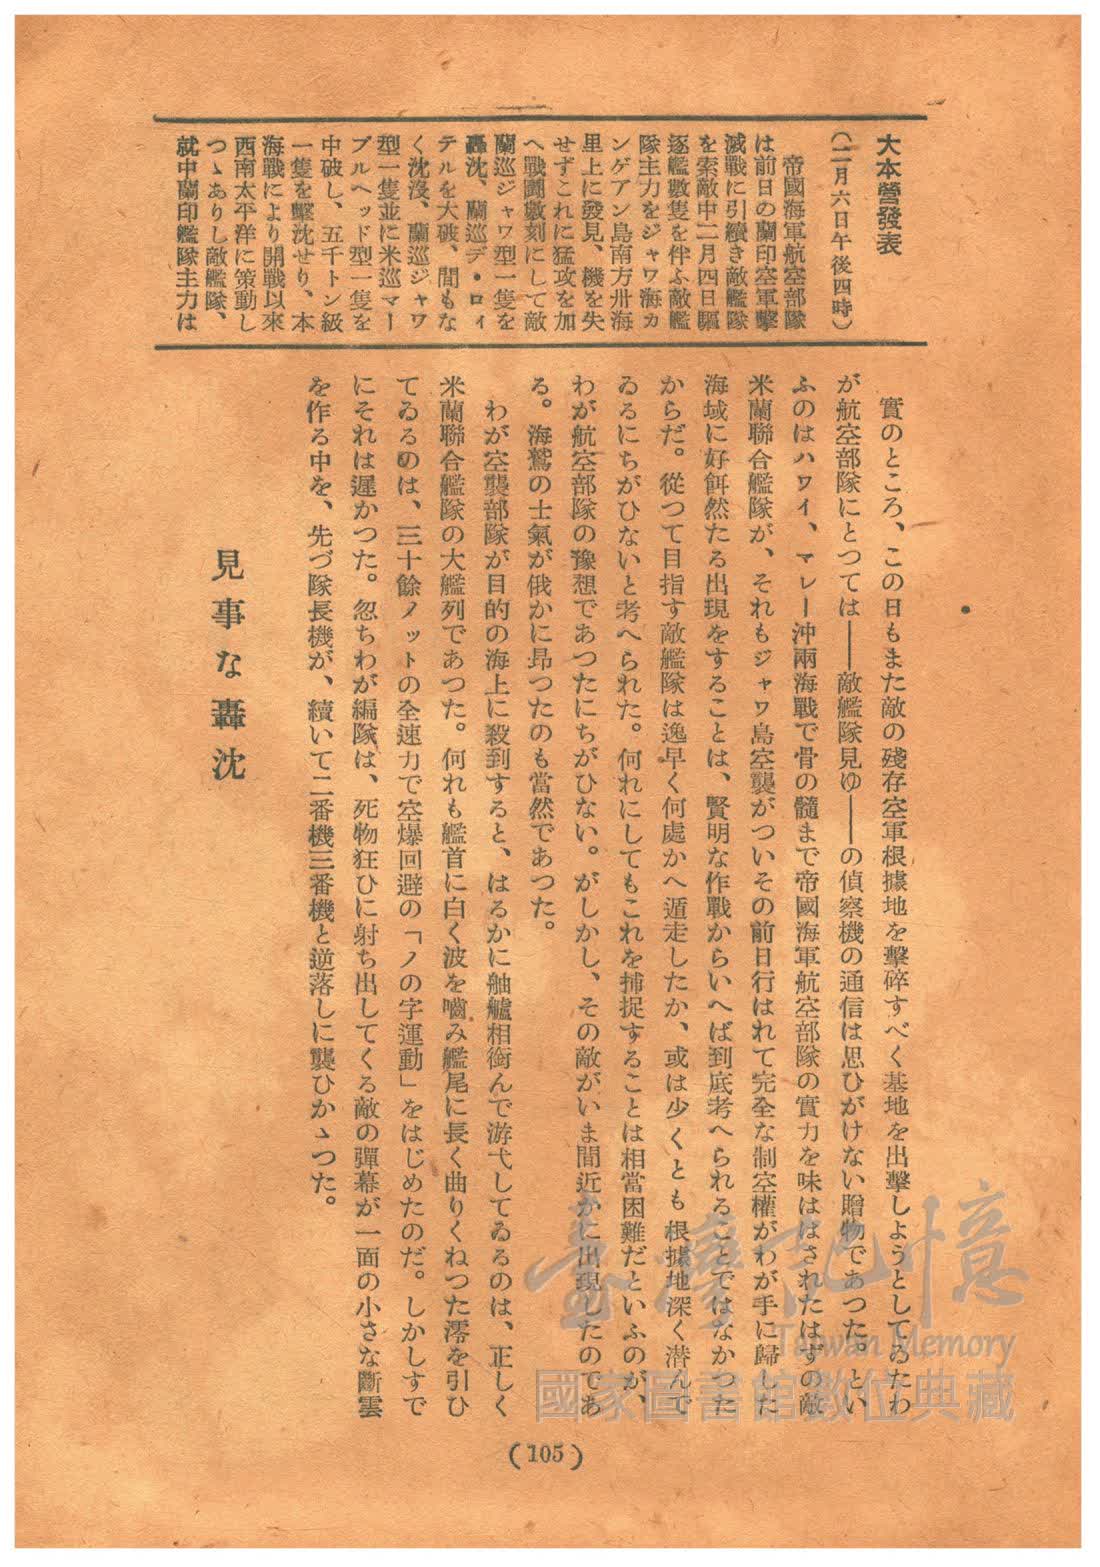 大本營發表
(二月六日午後四時)
帝國海軍航空部隊
は前日の蘭印空軍擊
滅戰に引續き敵艦隊
を索敵中二月四日驅
逐艦數隻を伴ふ敵艦
隊主力をジャワ海カ
ンゲアン島南方卅海
里上に發見、機を失
せずこれに猛攻を加
へ戰鬪數刻にして敵
蘭巡ジャワ型一隻を
轟沈、蘭巡デ・ロィ
テルを大破、間もな
く沈沒、蘭巡ジャワ
型一隻並に米巡マー
ブルヘッド型一隻を
中破し、五千トン級
一隻を擊沈せり、本
海戰により開戰以來
西南太平洋に策動し
つゝありし敵艦隊、
就中蘭印艦隊主力は
實のところ、この日もまた敵の殘存空軍根據地を擊碎すべく基地を出擊しようとしてゐたわ
が航空部隊にとつては――敵艦隊見ゆ――の偵察機の通信は思ひがけない贈物であつた。とい
ふのはハワイ、マレー沖兩海戰で骨の髓まで帝國海軍航空部隊の實力を味ははされたはずの敵
米蘭聯合艦隊が、それもジャワ島空襲がついその前日行はれて完全な制空權がわが手に歸した
海域に好餌然たる出現をすることは、賢明な作戰からいへば到底考へられることではなかつた
からだ。從つて目指す敵艦隊は逸早く何處かへ遁走したか、或は少くとも根據地深く潛んで
ゐるにちがひないと考へられた。何れにしてもこれを捕捉することは相當困難だといふのが、
わが航空部隊の豫想であつたにちがひない。がしかし、その敵がいま間近かに出現したのであ
る。海鷲の士氣が俄かに昂つたのも當然であつた。
わが空襲部隊が目的の海上に殺到すると、はるかに舳艫相銜んで游弋してゐるのは、正しく
米蘭聯合艦隊の大艦列であつた。何れも艦首に白く波を嚙み艦尾に長く曲りくねつた澪を引ひ
てゐるのは、三十餘ノットの全速力で空爆回避の「ノの字運動」をはじめたのだ。しかしすで
にそれは遲かつた。忽ちわが編隊は、死物狂ひに射ち出してくる敵の彈幕が一面の小さな斷雲
を作る中を、先づ隊長機が、續いて二番機三番機と逆落しに襲ひかゝつた。
見事な轟沈
(105)
臺灣記憶
Taiwan Memory
國家圖書館數位典藏